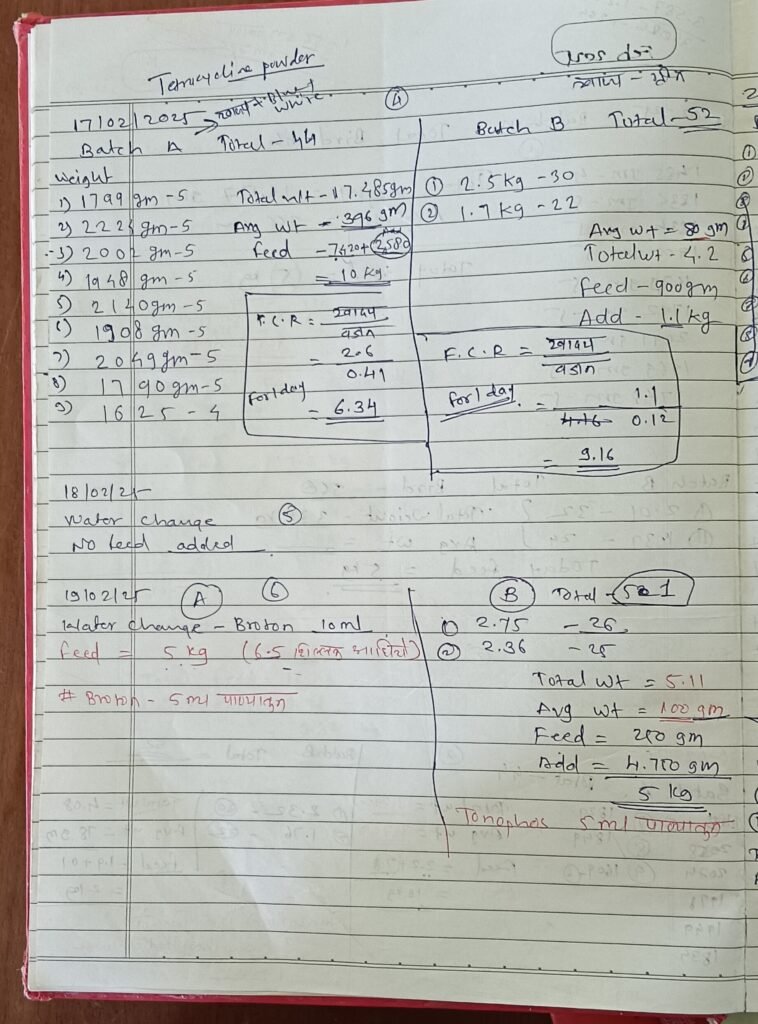 Tetracycline powder
17/02/2025
White
④
Batch A Total - 44
Weight
1) 1799 gm - 5
2) 2224 gm - 5
3) 2002 gm - 5
4) 1948 gm - 5
5) 2140 gm - 5
6) 1908 gm - 5
7) 2049 gm - 5
8) 1790 gm - 5
9) 1625 - 4
Total wt - 17.485gm
Avg wt - 396 gm
feed - 7420+2580
= 10 kg.
F.C.R = खाद्य
वजन
= 2.6
0.41
For 1 day
= 6.34
Batch B Total - 52
① 2.5 kg - 30
② 1.7 kg - 22
Avg wt = 80 gm
Total wt - 4.2
feed - 900gm
Add - 1.1 kg
F.C.R = खाद्य
वजन
for 1 day
= 1.1
4.16 0.12
= 9.16
18/02/25
Water change ⑤
No feed added
19/02/25 Ⓐ ⑥
Water change - Broton 10ml
feed = 5 kg (6.5 शिल्लक
# Broton - 5 ml पाण्यातून
Ⓑ Total - 51
① 2.75 - 26
② 2.36 - 25
Total wt = 5.11
Avg wt = 100 gm
Feed = 250 gm
Add = 4.750 gm
5 kg
Tonophos 5 ml पाण्यातून